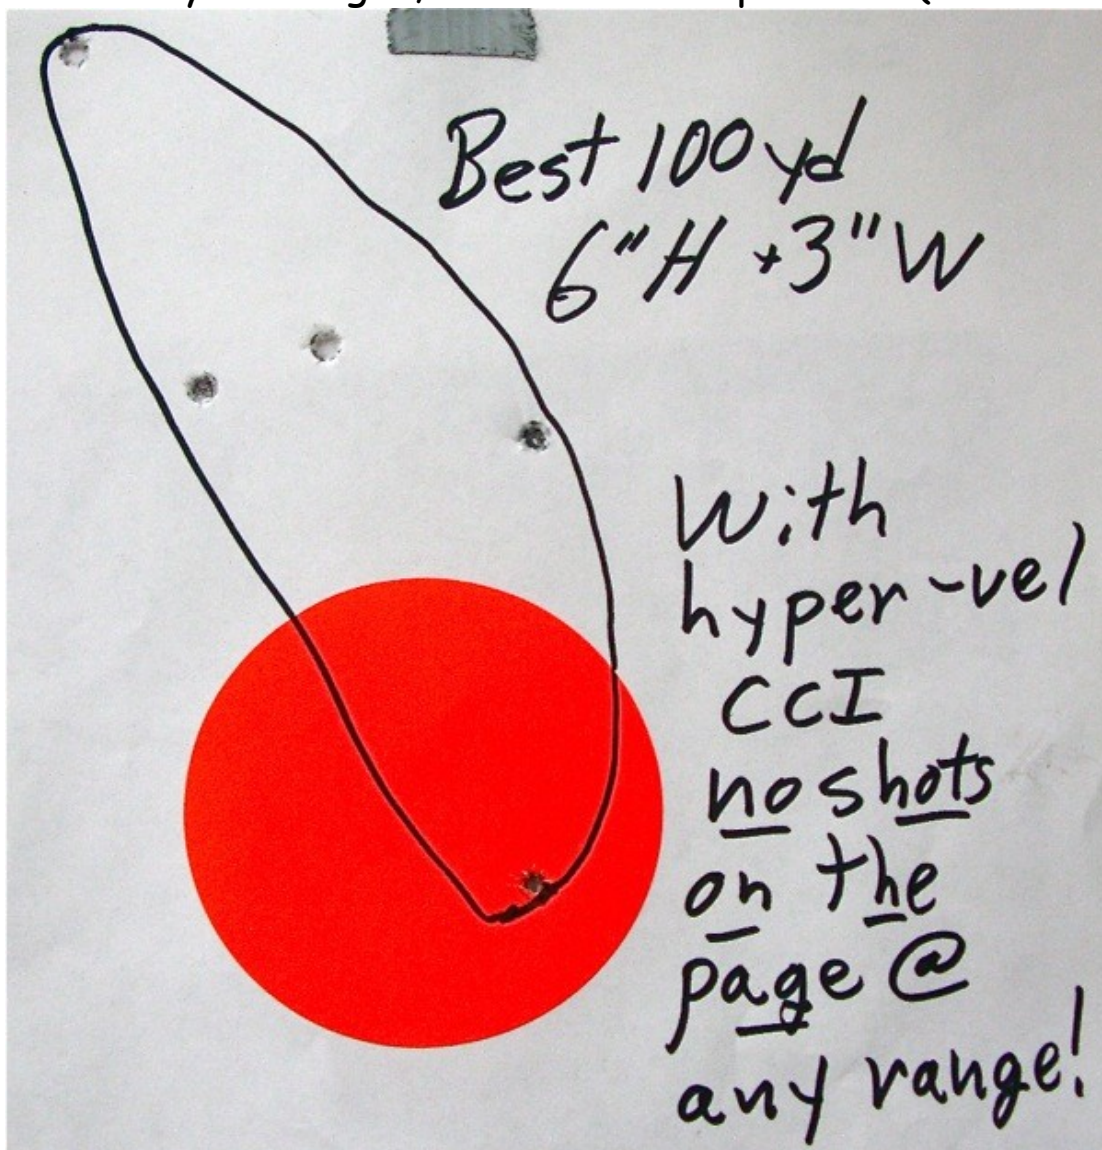 Best 100 yd
6"H + 3"W
With
hyper-vel
CCI
no shots
on the
page @
any range!